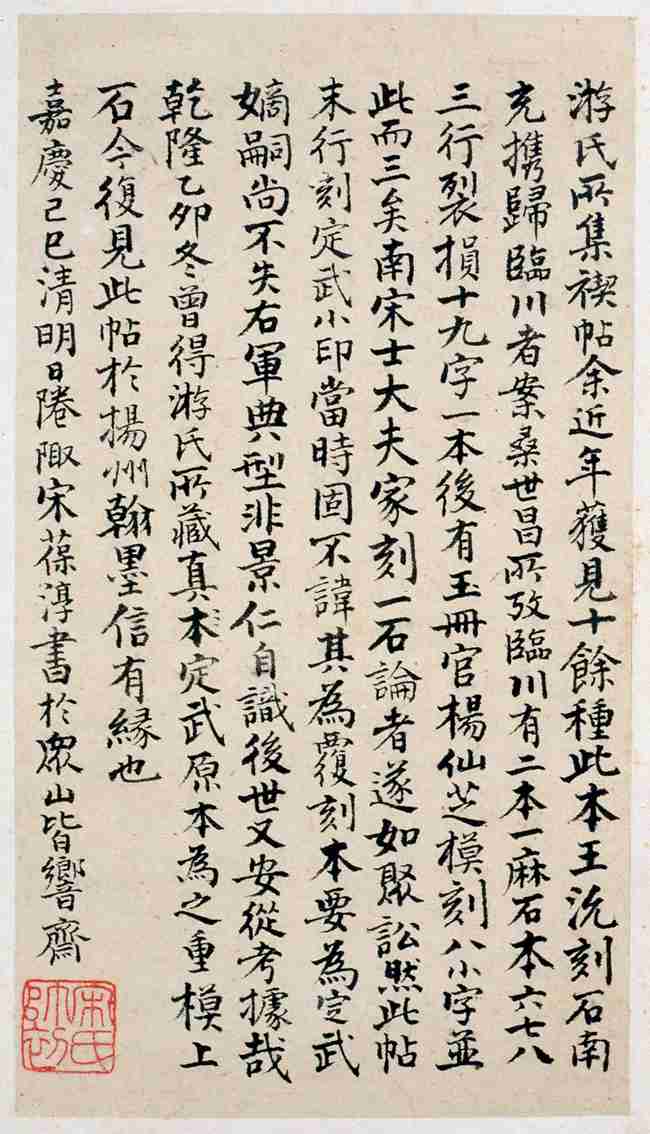 游氏所集禊帖余近年蒦見十餘種此本王沇刻石南
充攜歸臨川者案桑世昌所攷臨川有二本一麻石本六七八
三行裂損十九字一本後有玉冊官楊仙芝模刻八小字並
此而三矣南宋士大夫家刻一石論者遂如聚訟然此帖
末行刻定武小印當時固不諱其為覆刻本要為定武
嫡嗣尚不失右軍典型非景仁自識後世又安從考據哉
乾隆乙卯冬曾得游氏所藏真本定武原本為之重模上
石今復見此帖於揚州翰墨信有緣也
嘉慶己巳清明日陭陬宋葆淳書於眾山皆響齋
宋氏